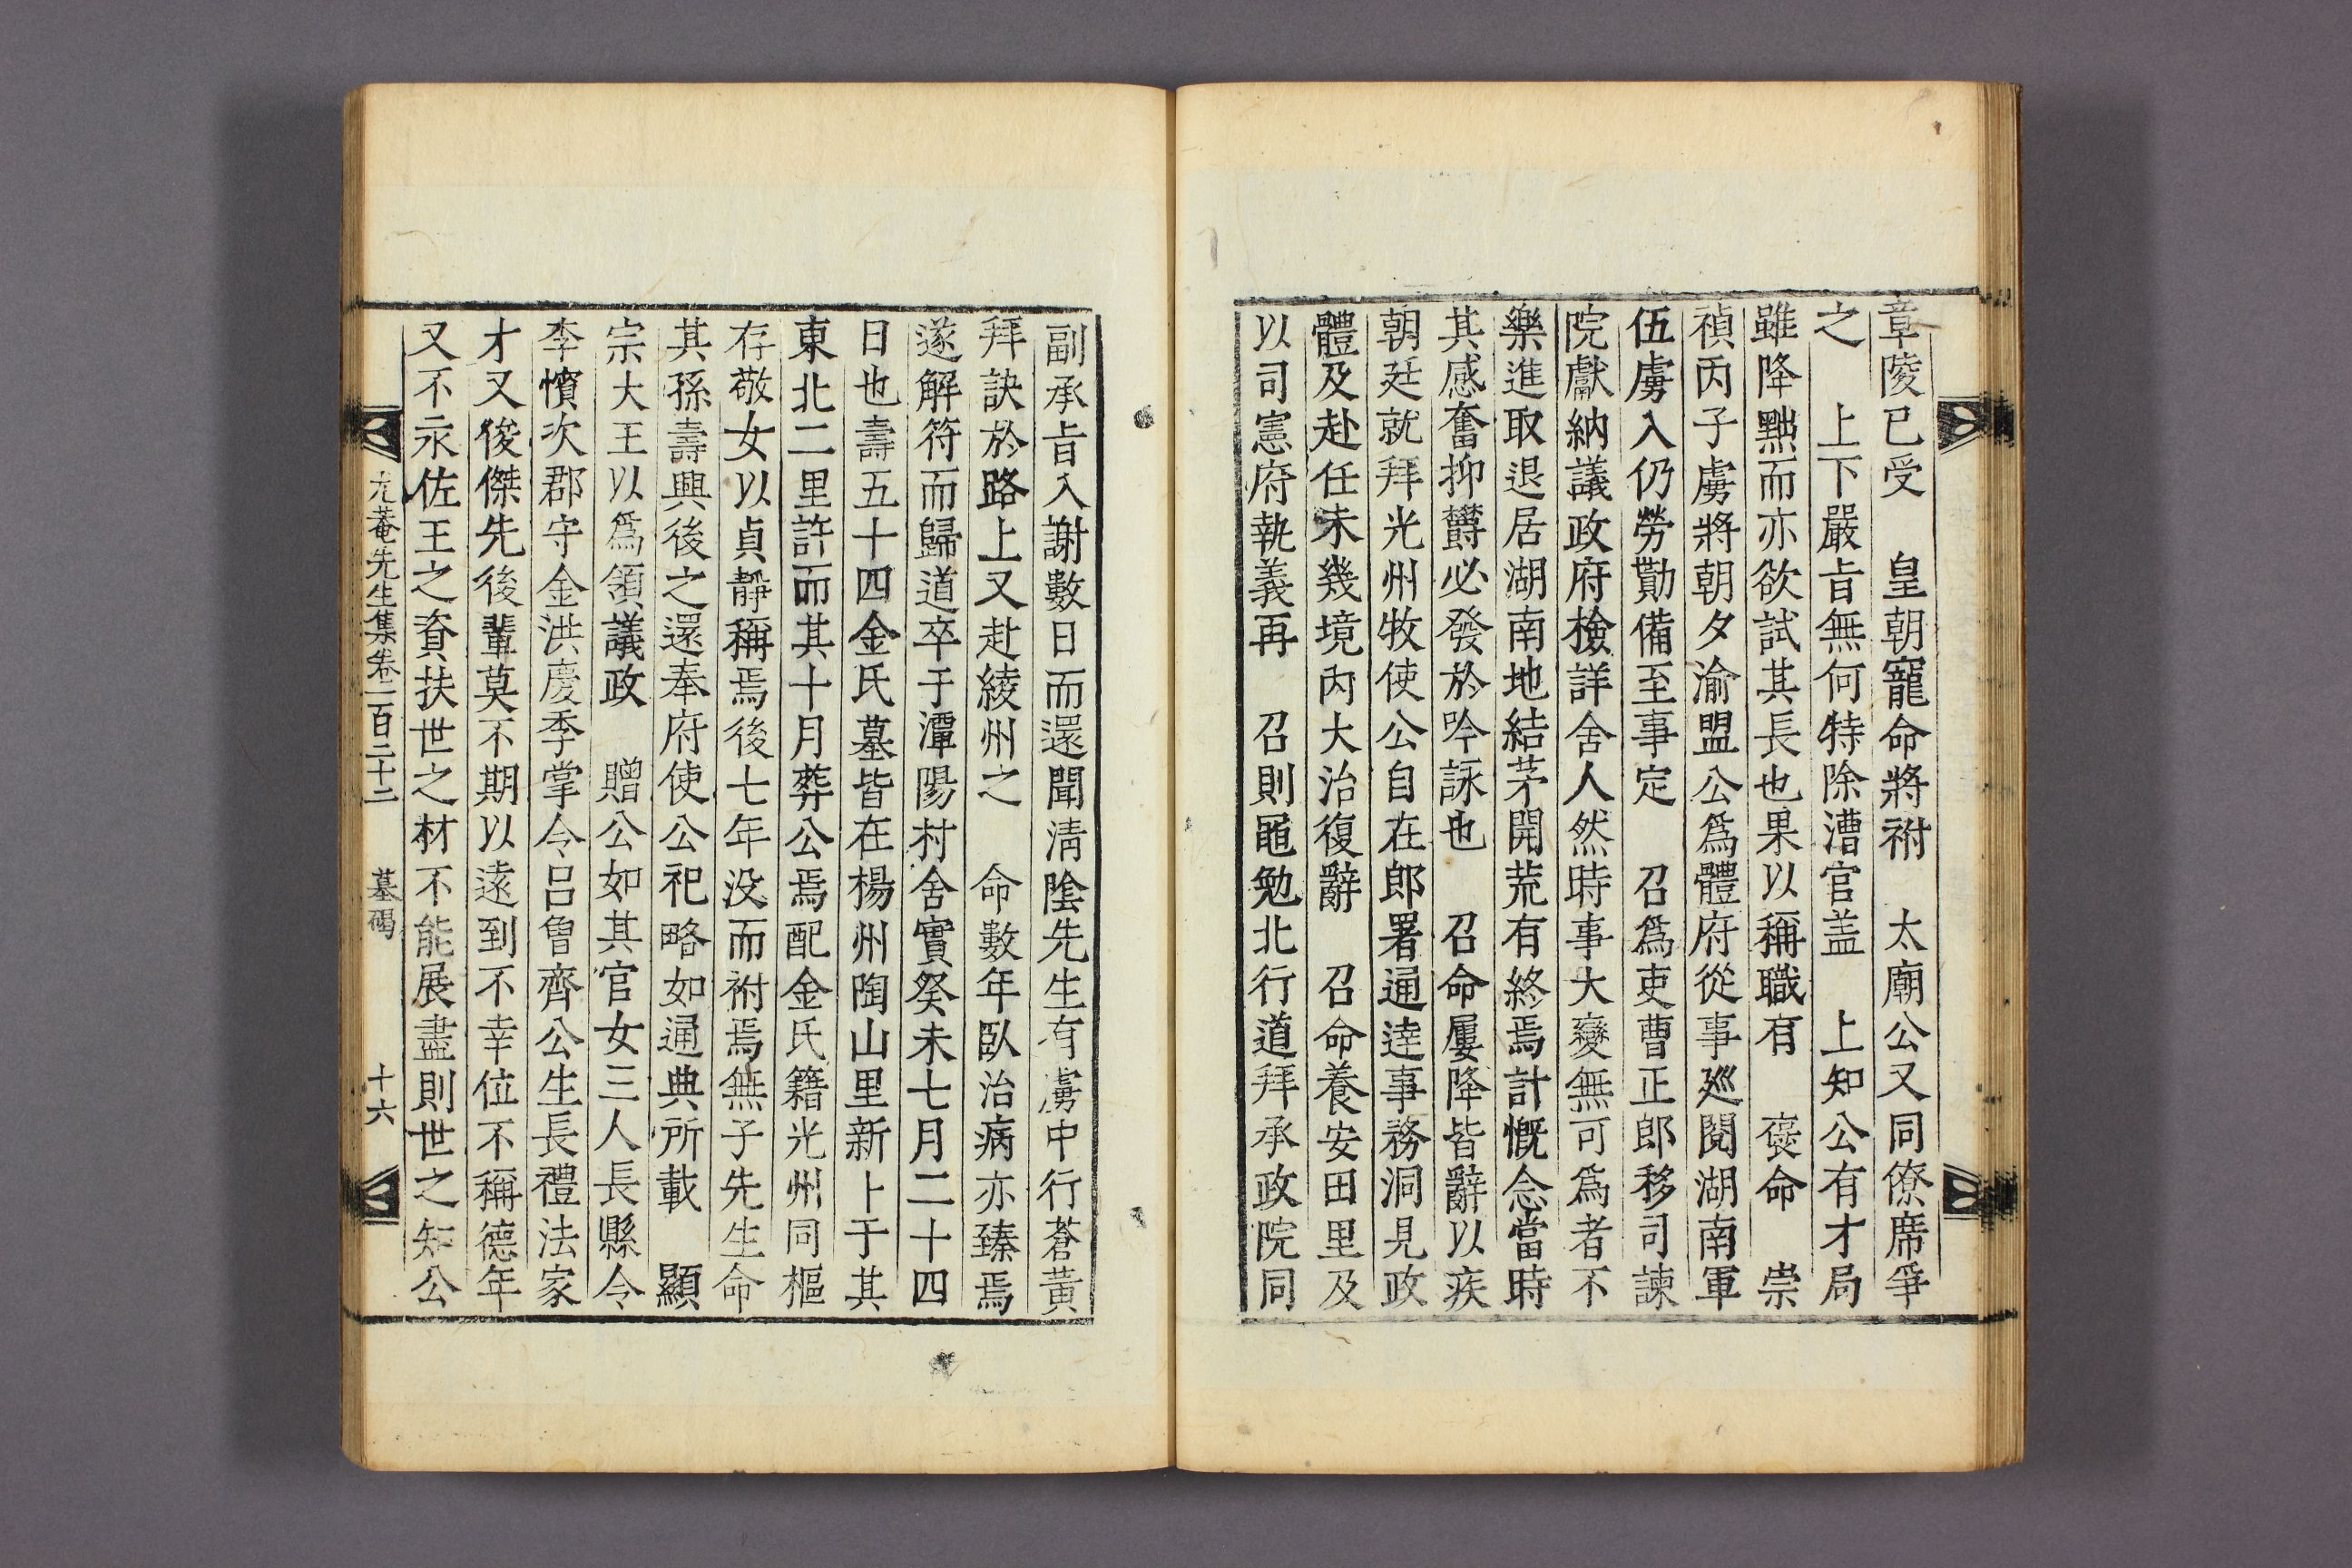 章陵已受 皇朝寵命將祔 太廟公又同僚席爭
之 上下嚴旨無何特除漕官盖 上知公有才局
雖降黜而亦欲試其長也果以稱職有 褒命 崇
禎丙子虜將朝夕渝盟公爲體府從事巡閱湖南軍
伍虜入仍勞勩備至事定 召爲吏曹正郎移司諫
院獻納議政府檢詳舍人然時事大變無可爲者不
樂進取退居湖南地結茅開荒有終焉計慨念當時
其感奮抑欝必發於吟詠也 召命屢降皆辭以疾
朝廷就拜光州牧使公自在郎署通達事務洞見政
體及赴任未幾境內大治復辭 召命養安田里及
以司憲府執義再 召則黽勉北行道拜承政院同
副承旨入謝數日而還聞淸陰先生有虜中行蒼黃
拜訣於路上又赴綾州之 命數年臥治病亦臻焉
遂解符而歸道卒于潭陽村舍實癸未七月二十四
日也壽五十四金氏墓皆在楊州陶山里新卜于其
東北二里許而其十月葬公焉配金氏籍光州同樞
存敬女以貞靜稱焉後七年没而祔焉無子先生命
其孫壽興後之還奉府使公祀略如通典所載 顯
宗大王以爲領議政 贈公如其官女三人長縣令
李懫次郡守金洪慶季掌令呂曾齊公生長禮法家
才又俊傑先後輩莫不期以遠到不幸位不稱德年
又不永佐王之資扶世之材不能展盡則世之知公
尤菴先生集卷一百二十二 墓碣 十六